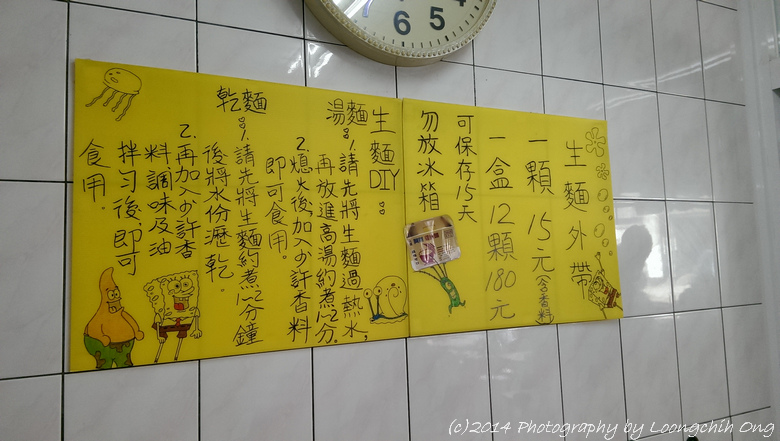 6 5
生麵外帶
一顆15元(含香料)
一盒12顆180元
可保存15天
勿放冰箱
生麵DIY:
湯麵:1.請先將生麵過熱水,
再放進高湯約煮1~2分.
2.熄火後加入少許香料
即可食用。
乾麵:1.請先將生麵約煮1~2分鐘
後將水份瀝乾.
2.再加入少許香
料調味及油
拌勻後即可
食用.
(c)2014 Photography by Loongchih Ong